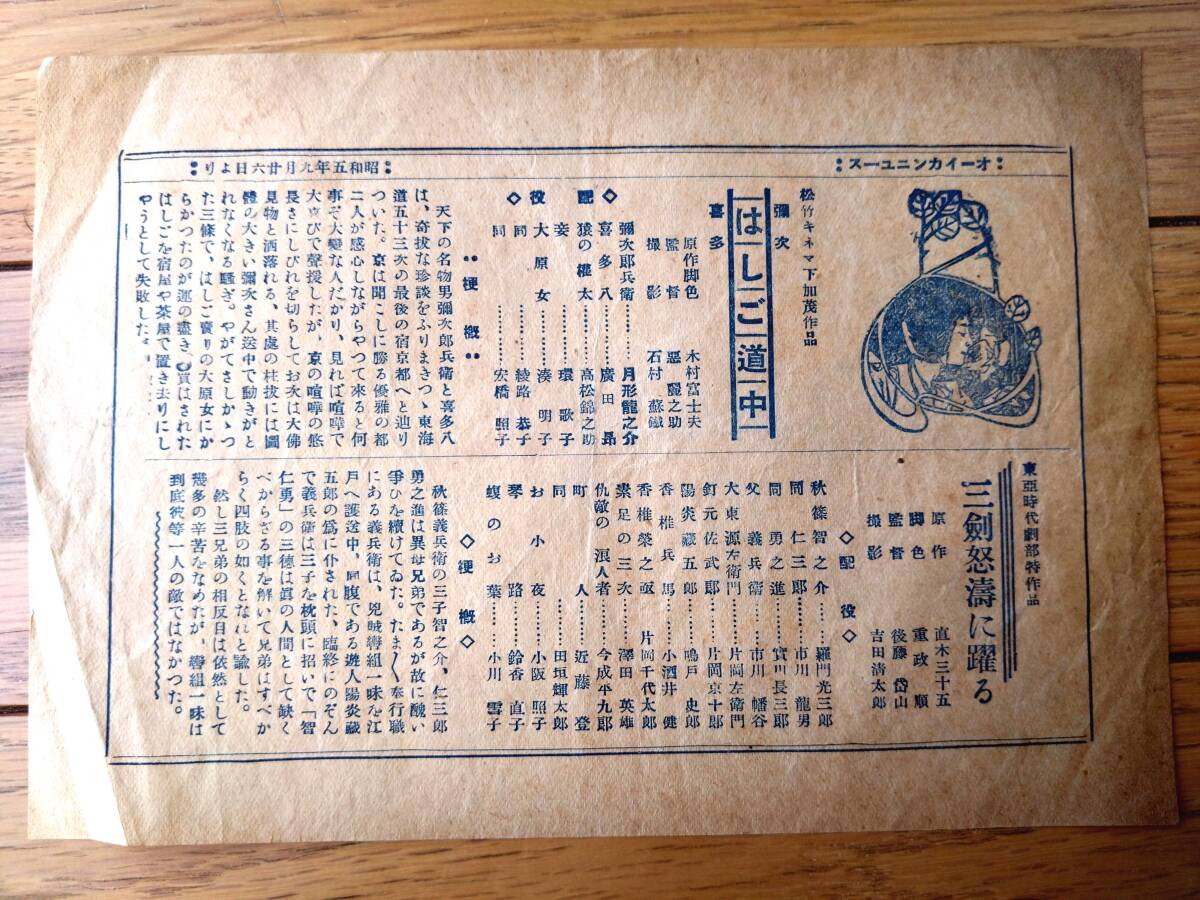 オーイカンニユース
昭和五年九月廿六日より
松竹キネマ下加茂作品
彌次
喜多
はしご道中
原作脚色 木村富士夫
監督 惡麗之助
撮影 石村蘇鐵
◇配役◇
彌次郎兵衛………月形龍之介
喜多八………廣田昂
猿の權太………高松錦之助
妾………環歌子
大原女………湊明子
同………綾路恭子
同………宏橋照子
梗概
天下の名物男彌次郎兵衛と喜多八
は、奇拔な珍談をふりまきつゝ東海
道五十三次の最後の宿京都へと辿り
ついた。京は聞こしに勝る優雅の都
二人が感心しながらやつて來ると何
事ぞ大變な人だかり、見れば喧嘩で
大喜びで聲援したが、京の喧嘩の悠
長さにしびれを切らしてお次は大佛
見物と洒落れる、其處の柱拔には圖
體の大きい彌次さん途中で動きがと
れなくなる騷ぎ。やがてさしかゝつ
た三條で、はしご賣りの大原女にか
らかつたのが運の盡き、買はされた
はしごを宿屋や茶屋で置き去りにし
やうとして失敗した
東亞時代劇部特作品
三劍怒濤に躍る
原作 直木三十五
脚色 重政順
監督 後藤岱山
撮影 吉田清太郎
◇配役◇
秋篠智之介………羅門光三郎
同仁三郎………市川龍男
同勇之進………實川長三郎
父義兵衛………市川幡谷
大東源左衛門………片岡左衛門
釘元佐武郎………片岡京十郎
陽炎藏五郎………鳴戸史郎
香椎兵馬………小酒井健
香椎榮之亟 片岡千代太郎
素足の三次………澤田英雄
仇敵の浪人者………今成平九郎
町人………近藤登
同………田垣輝太郎
お小夜………小阪照子
琴路………鈴香直子
蝮のお葉………小川雪子
◇梗概◇
秋篠義兵衛の三子智之介、仁三郎
勇之漁は異母兄弟であるが故に醜い
爭ひを續けてゐた。たま〱奉行職
にある義兵衛は、兇賊辮組一味を江
戸へ護送中、同腹である遊人陽炎藏
五郎の爲に仆された、臨終にのぞん
で義兵衛は三子を枕頭に招いで「智
仁勇」の三德は眞の人間として缺く
べからざる事を解いて兄弟はすべか
らく四肢の如くとなれと諭した。
然し三兄弟の相反目は依然として
幾多の辛苦をなめたが、辮組一味は
到底彼等一人の敵ではなかつた。